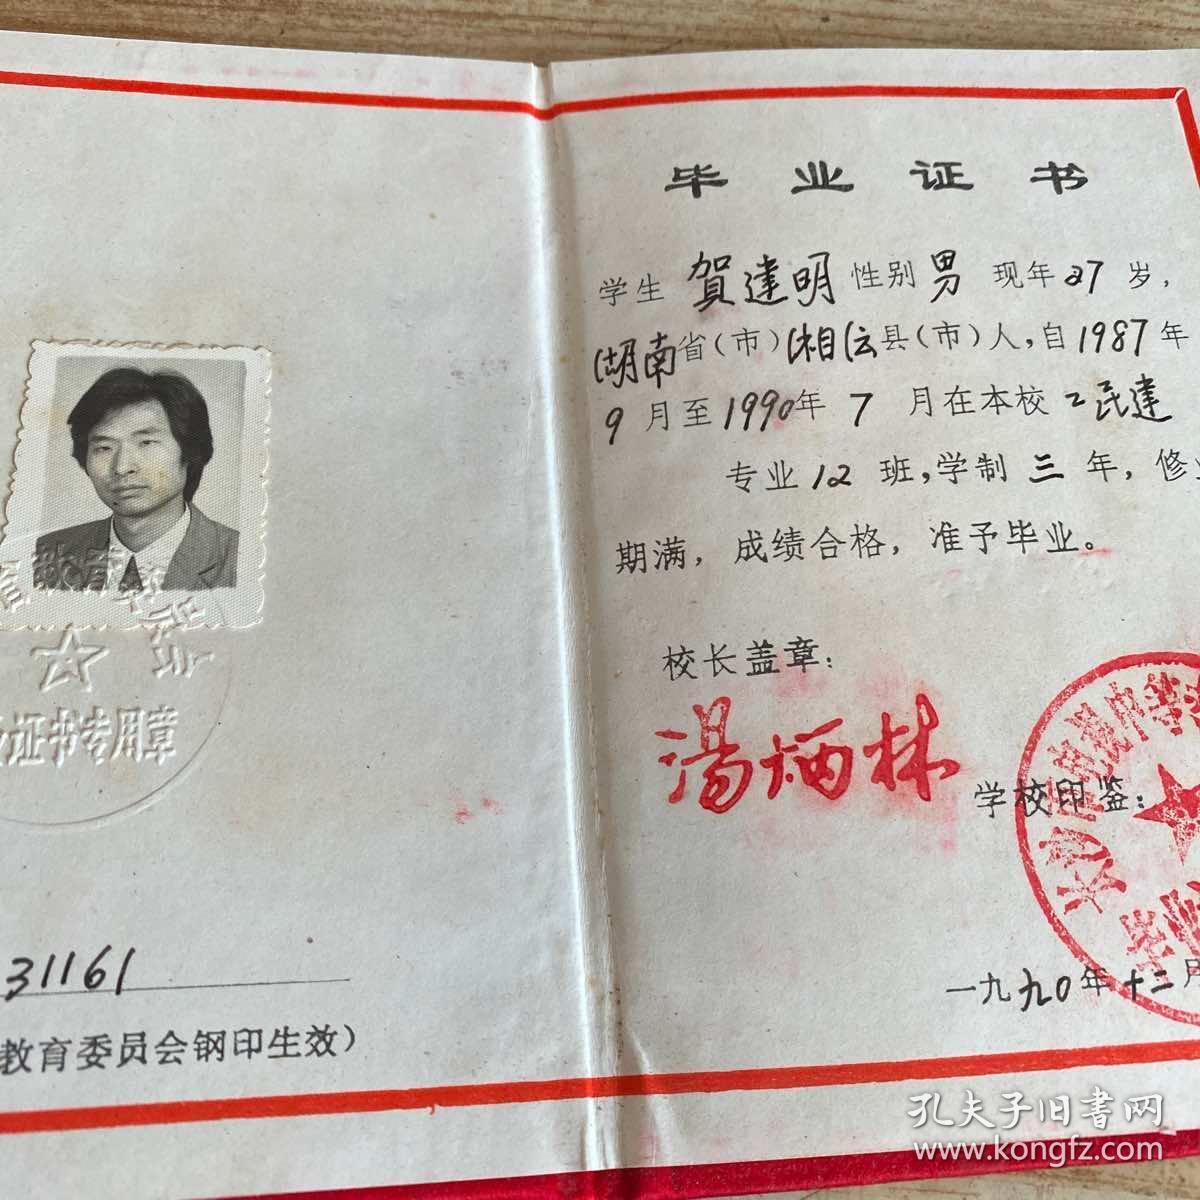 证书专用章
31161
教育委员会钢印生效）
毕业证书
学生 賀建明 性别 男 现年 27 岁，
湖南省（市）湘潭县（市）人，自1987年
9月至1990年7月在本校工民建
专业12班，学制三年，修业
期满，成绩合格，准予毕业。
校长盖章：
湯炳林
学校印鉴：
一九九〇年十二月
孔夫子旧书网
www.kongfz.com